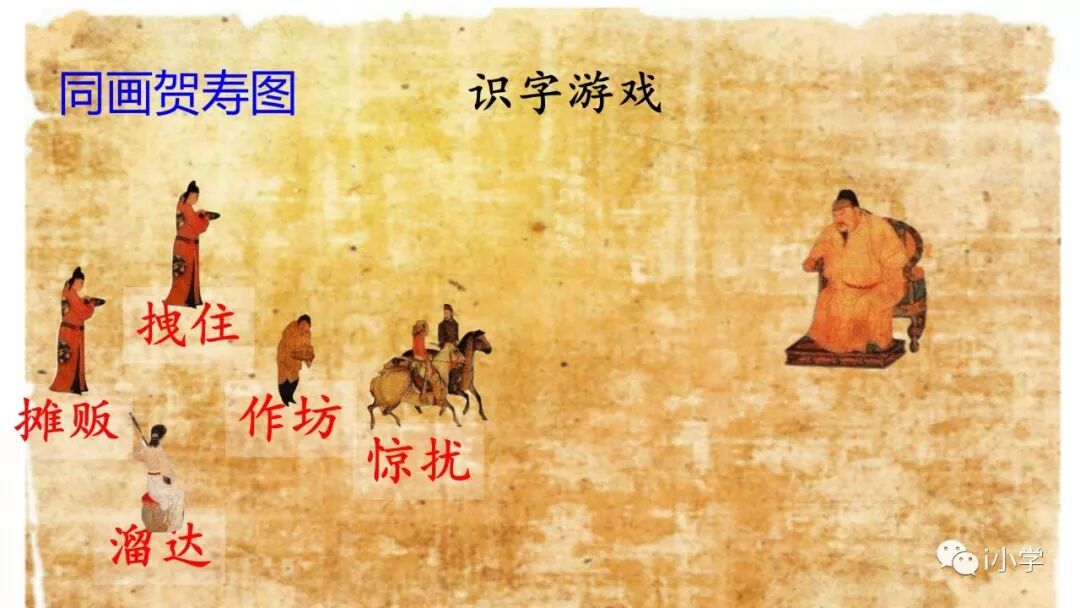 同画贺寿图
识字游戏
拽住
摊贩
作坊
惊扰
溜达
i小学